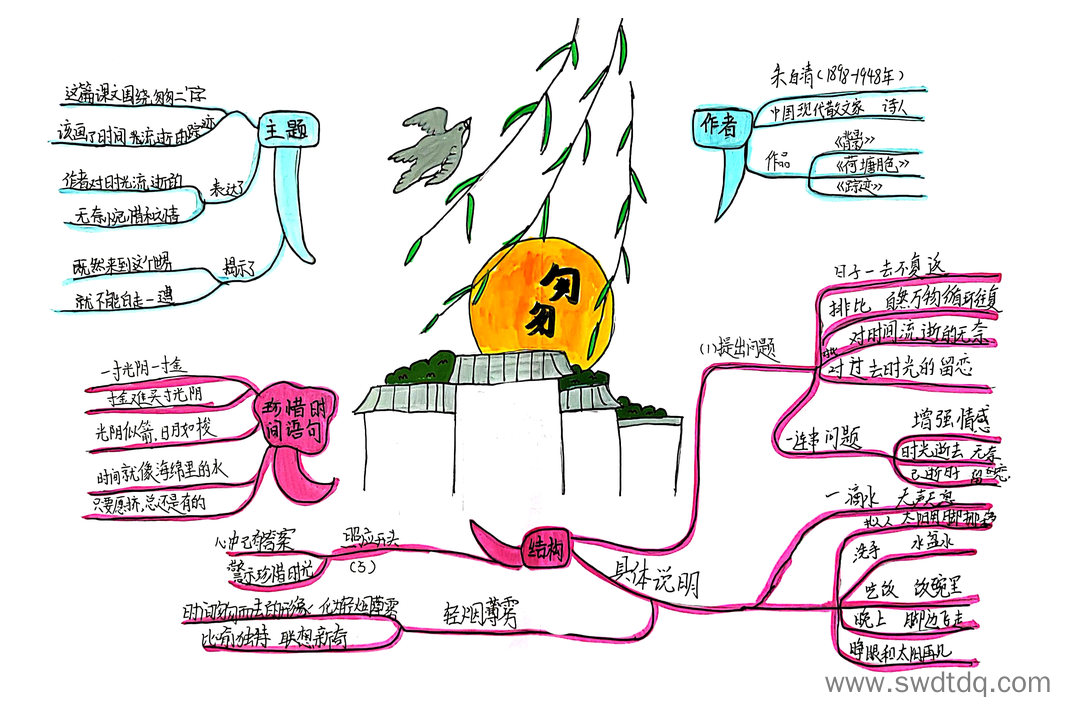 这篇课文围绕匆匆二字
该画了时间流逝的踪迹
主题
作者对时光流逝的
无奈惋惜和
表达了
既然来到这个世界
就不能白走一遭
揭示了
作者
朱自清(1898-1948年)
中国现代散文家 诗人
作品
《背影》
《荷塘月色》
《踪迹》
匆匆
珍惜时间语句
一寸光阴一寸金
寸金难买寸光阴
光阴似箭,日月如梭
时间就像海绵里的水
只要愿挤,总还是有的
结构
(1)提出问题
日子一去不复返
排比 自然万物循环往复
对比
对时间流逝的无奈
对过去时光的留恋
一连串问题
增强情感
时光逝去 无奈
已逝时 留恋
具体说明
一滴水 无声无息
拟人 太阳用脚挪移
洗手 水盆水
吃饭 饭碗里
晚上 脚边飞走
睁眼和太阳再见
轻烟薄雾
时间匆匆而去的形象 化为轻烟薄雾
比喻独特 联想新奇
照应开头
(3)
心中已有答案
警示珍惜时光
www.swdtdq.com